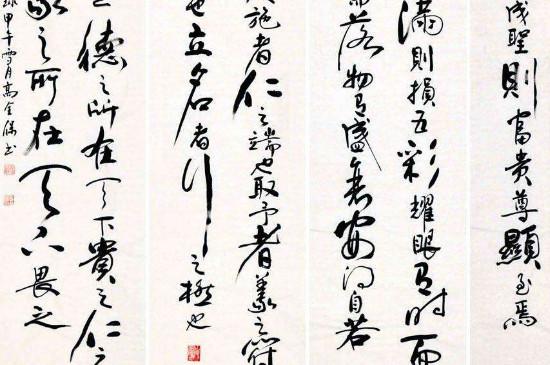 成聖則富貴尊顯至焉
滿則損五彩耀眼有時而
落物有盛衰安得自若
施者仁之端也取予者義之符
也立名者行之極也
德之所在天下貴之仁之
之所在天下畏之
甲午雪月高全保书